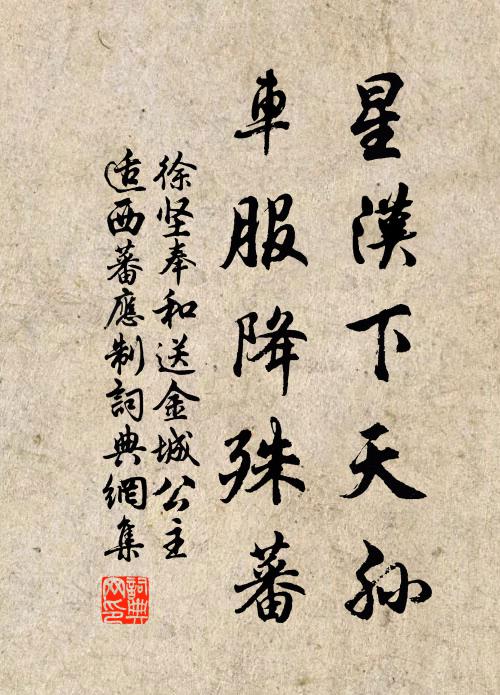 星漢下天孫
車服降殊蕃
徐坚奉和送金城公主
适西蕃應制詞典網集
詞典网印